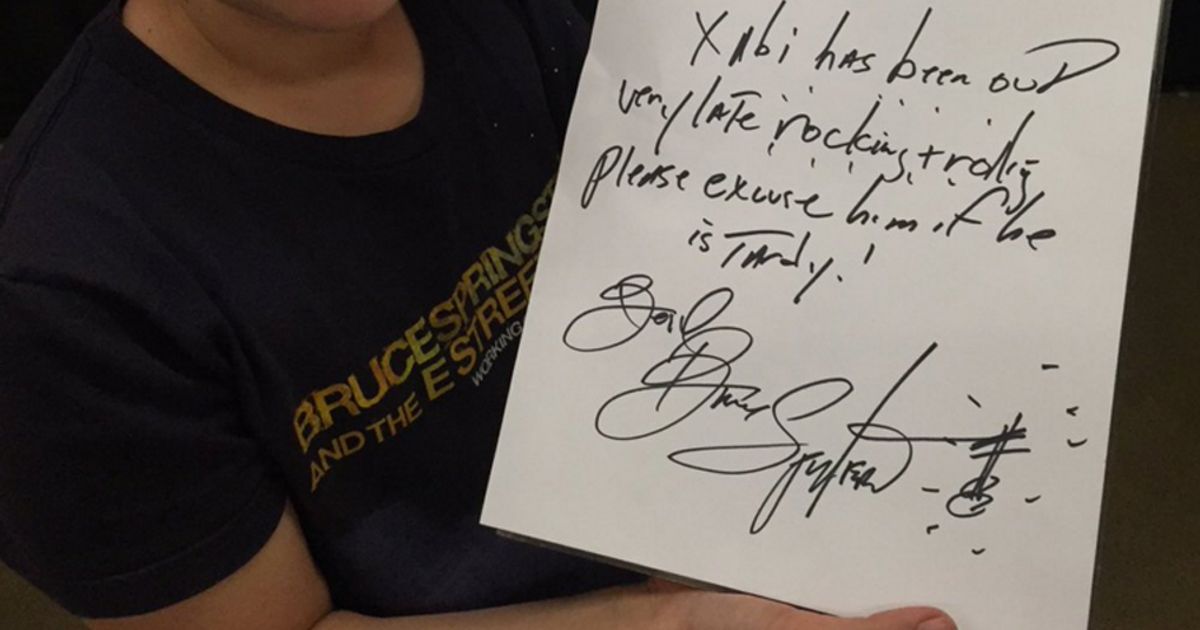 BRUCE SPRINGS
AND THE E STREE
WORKING
Xabi has been out
very late rocking + rolling
Please excuse him if he
is tardy!
Bruce Springsteen